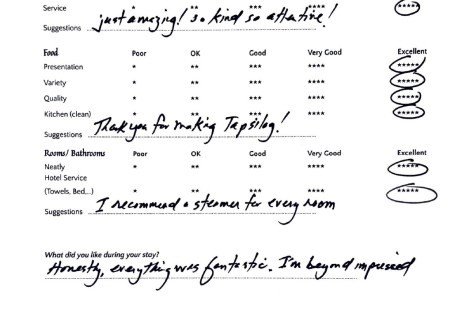 Service * ** *** **** *****
Suggestions just amazing! so kind so attentive!
Food Poor OK Good Very Good Excellent
Presentation * ** *** **** *****
Variety * ** *** **** *****
Quality * ** *** **** *****
Kitchen (clean) * ** *** **** *****
Suggestions Thank you for making Tapsilog!
Rooms/ Bathrooms Poor OK Good Very Good Excellent
Neatly * ** *** **** *****
Hotel Service
(Towels, Bed,..) * ** *** **** *****
Suggestions I recommend a steamer for every room
What did you like during your stay?
Honestly, everything was fantastic. I'm beyond impressed